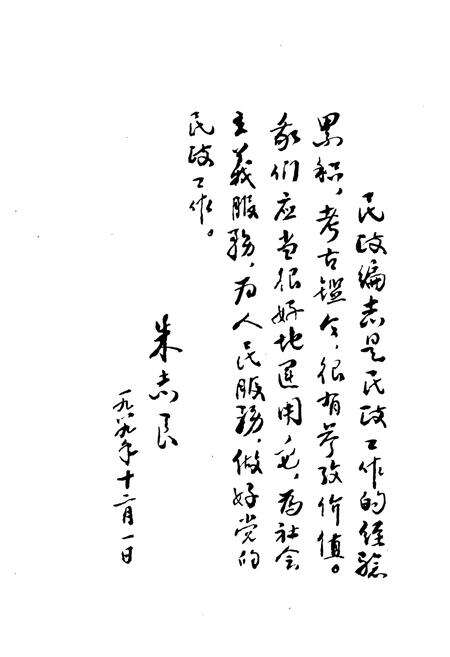 民政编志是民政工作的经验
累积，考古鉴今，很有参考价值。
我们应当很好地运用它，为社会
主义服务，为人民服务，做好党的
民政工作。
朱志良
一九八九年十二月一日